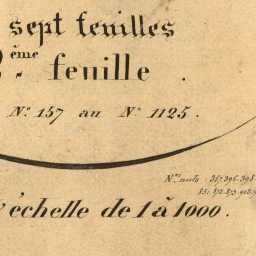 sept feuilles
2ème feuille.
No. 157 au No 1125.
l'échelle de 1 à 1000.